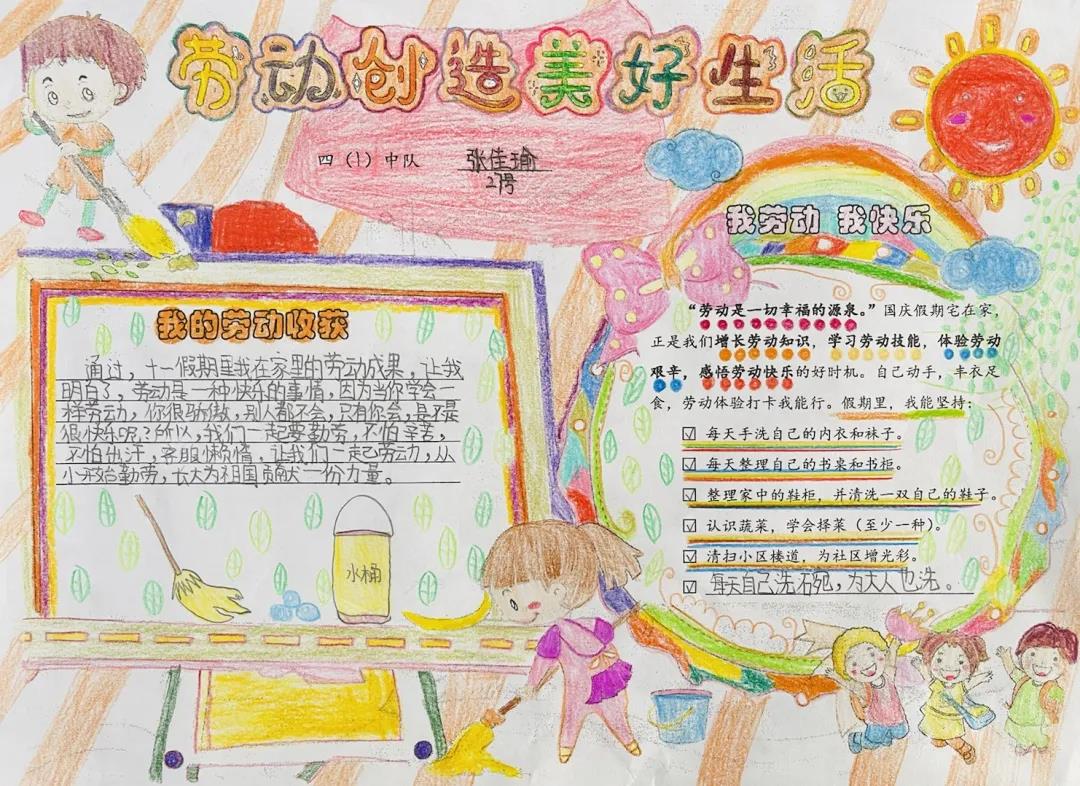 劳动创造美好生活
四（1）中队 张佳瑜
27号
我劳动 我快乐
“劳动是一切幸福的源泉。”国庆假期宅在家，
正是我们增长劳动知识，学习劳动技能，体验劳动
艰辛，感悟劳动快乐的好时机。自己动手，丰衣足
食，劳动体验打卡我能行。假期里，我能坚持：
☑ 每天手洗自己的内衣和袜子。
☑ 每天整理自己的书桌和书柜。
☑ 整理家中的鞋柜，并清洗一双自己的鞋子。
☑ 认识蔬菜，学会择菜（至少一种）。
☑ 清扫小区楼道，为社区增光彩。
☑ 每天自己洗碗，为大人也洗。
我的劳动收获
通过，十一假期里我在家里的劳动成果，让我
明白了，劳动是一种快乐的事情，因为当你学会一
样劳动，你很骄傲，别人都不会，只有你会，是不是
很快乐呢？所以，我们一起要勤劳，不怕辛苦，
不怕出汗，克服懒惰，让我们一起劳动，从
小开始勤劳，长大为祖国贡献一份力量。
水桶